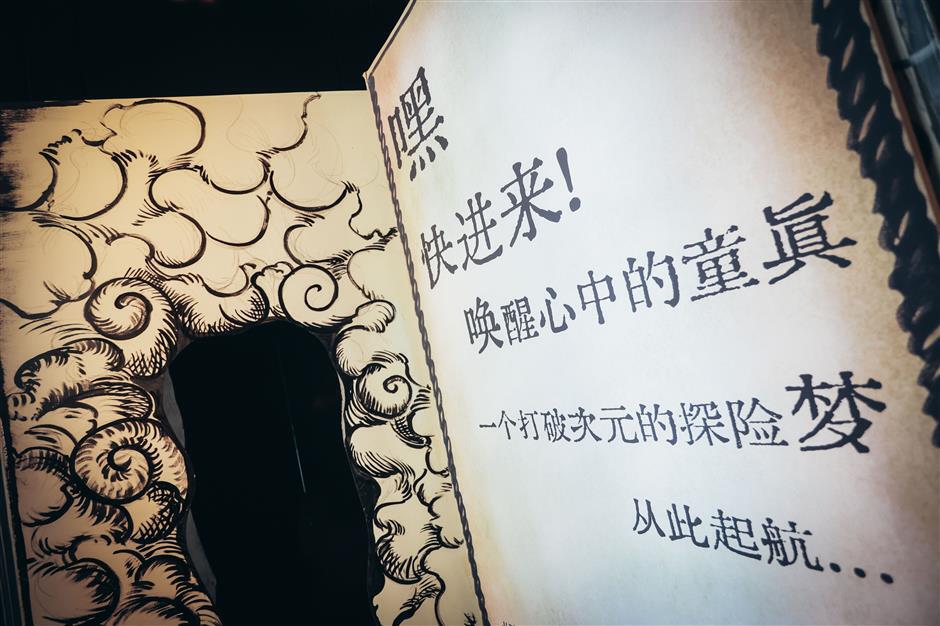 嘿
快进来!
唤醒心中的童真
一个打破次元的探险梦
从此起航...